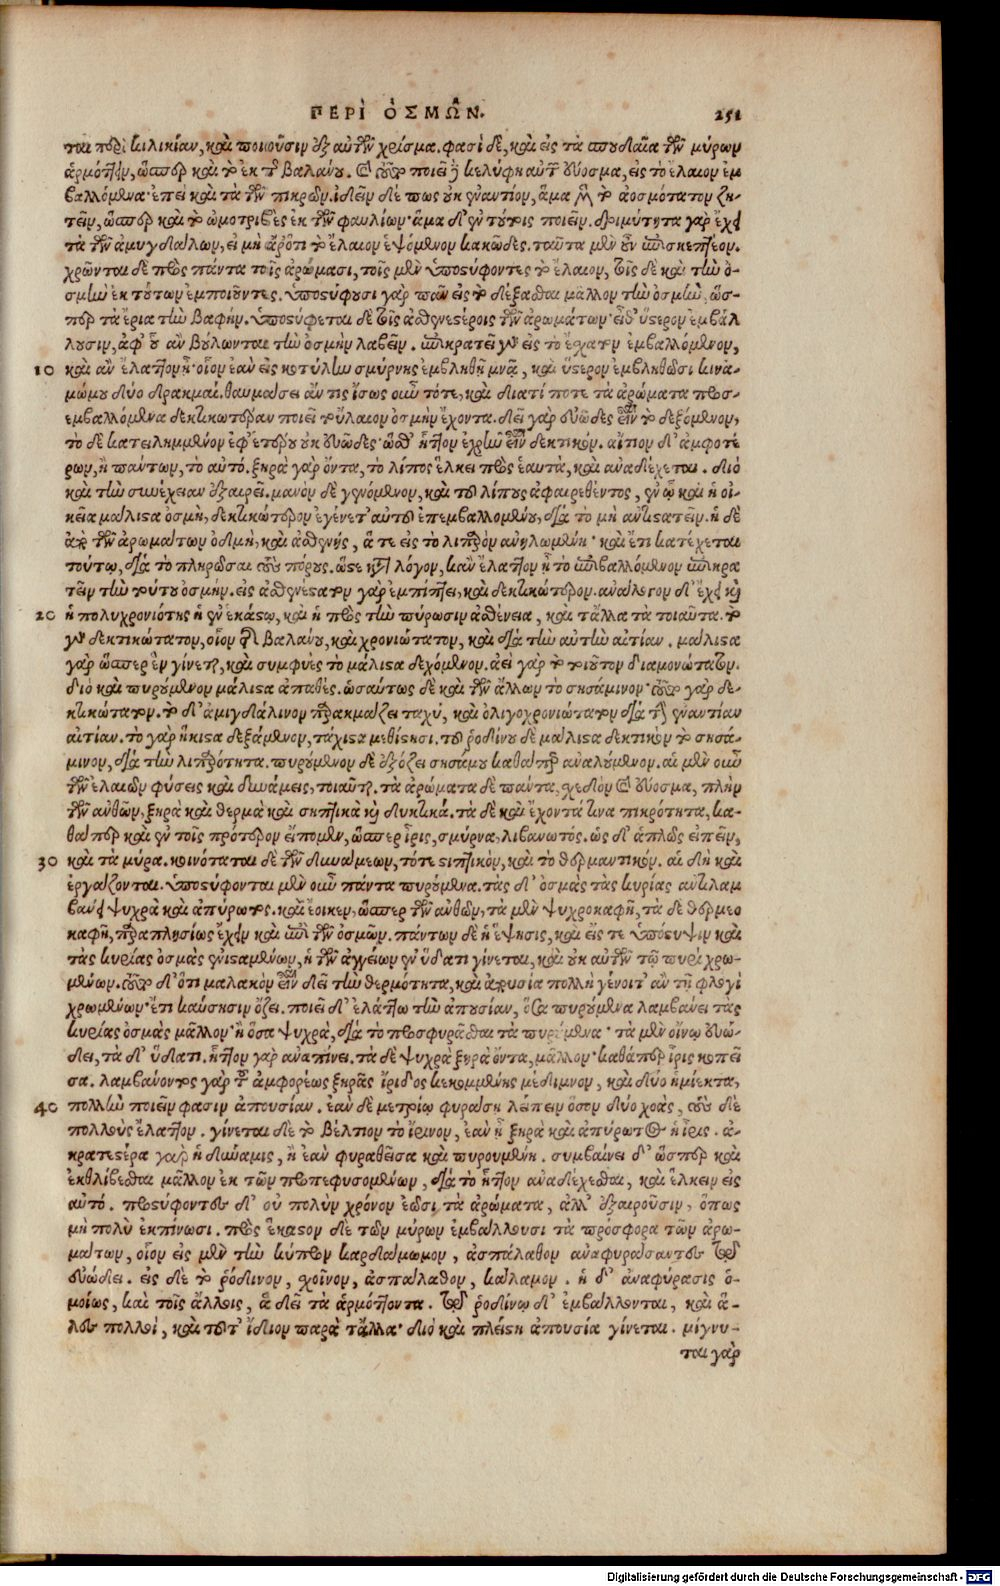 ΠΕΡῚ ὈΣΜΩ͂Ν. 251
ται περὶ κιλικίαν, καὶ ποιοῦσιν ἐξ αὐτῶν χρίσμα. φασὶ δὲ, καὶ εἰς τὰ σπουδαῖα τῶν μύρων
ἁρμότ͂ειν, ὥσπερ καὶ τὸ ἐκ τοῦ βαλάνου. τοῦτο ποιεῖ κελύφη αὐτῶν εὔοσμα, εἰς τὸ ἔλαιον ἐμ
βαλλόμενα· ἐπεὶ καὶ τὰ τῶν πικρῶν. ἰδεῖν δέ πως οὐκ ἐναντίον, ἅμα τὸ ἀοσμότατον ζη-
τεῖν, ὥσπερ καὶ τὸ ὠμοτριβὲς ἐκ τῶν φαυλίων· ἅμα δ' ἐν τούτοις ποιεῖν. δριμύτητα γὰρ ἔχει
τὰ τῶν ἀμυγδάλων, εἰ μὴ τὸ ἔλαιον ἑψόμενον κακῶδες. ταῦτα μὲν οὖν ἐπισκεπτέον.
χρῶνται δὲ πρὸς πάντα τοῖς ἀρώμασι, τοῖς μὲν ὑποστύφοντες τὸ ἔλαιον, τοῖς δὲ καὶ τὴν ὀ-
σμὴν ἐκ τούτων ἐμποιοῦντες. ὑποστύφουσι γὰρ πᾶν εἰς τὸ δέξασθαι μᾶλλον τὴν ὀσμὴν, ὥσ-
περ τὰ ἔρια τὴν βαφήν. ὑποστύφεται δὲ τοῖς ἀσθενεστέροις τῶν ἀρωμάτων· εἶθ' ὕστερον ἐμβάλ
λουσιν, ἀφ' οὗ ἂν βούλωνται τὴν ὀσμὴν λαβεῖν. ἐπικρατεῖ γὰρ εἰς τὸ ἔσχατον ἐμβαλλόμενον,
10 καὶ ἂν ἔλατ͂ον ᾖ· οἷον ἐὰν εἰς κοτύλην σμύρνης ἐμβληθῇ μνᾶ, καὶ ὕστερον ἐμβληθῶσι κινα-
μώμου δύο δραχμαί. θαυμάσει ἄν τις ἴσως οὖν τότε, καὶ διατί ποτε τὰ ἀρώματα προσ-
εμβαλλόμενα δεκτικώτερον ποιεῖ τοὔλαιον ὀσμὴν ἔχοντα. δεῖ γὰρ εὐῶδες εἶναι τὸ δεξόμενον,
τὸ δὲ κατειλημμένον ἐφ' ἑτέρου οὐκ εὐῶδες· ὥσθ' ἧτ͂ον ἐχρῆν εἶναι δεκτικόν. αἴτιον δ' ἀμφοτέ
ρων, ἢ πάντων, τὸ αὐτό. ξηρὰ γὰρ ὄντα, τὸ λίπος ἕλκει πρὸς ἑαυτὰ, καὶ ἀναδέχεται. διὸ
καὶ τὴν συνέχειαν ἐξαιρεῖ. μανὸν δὲ γενόμενον, καὶ τοῦ λίπους ἀφαιρεθέντος, ἐν ᾧ καὶ ἡ οἰ-
κεία μάλιστα ὀσμὴ, δεκτικώτερον ἐγένετ' αὐτοῦ ἐπεμβαλλομένου, διὰ τὸ μὴ ἀντιστατεῖν. ἡ δὲ
ἀπὸ τῶν ἀρωμάτων ὀσμὴ, καὶ ἀσθενής, ἅ τε εἰς τὸ λιπαρὸν ἀνηλωμένη· καὶ ἔτι κατέχεται
τούτῳ, διὰ τὸ πληρῶσαι τοὺς πόρους. ὥστε κατὰ λόγον, κἂν ἔλατ͂ον ᾖ τὸ ἐπιβαλλόμενον ἐπικρα
τεῖν τὴν τούτου ὀσμήν. εἰς ἀσθενέστατον γὰρ ἐμπίπτει, καὶ δεκτικώτερον. ἀνάλογον δ' ἔχει καὶ
20 ἡ πολυχρονιότης ἡ ἐν ἑκάστῳ, καὶ ἡ πρὸς τὴν πύρωσιν ἀσθένεια, καὶ τἄλλα τὰ τοιαῦτα. τὸ
γὰρ δεκτικώτατον, οἷον τὸ βαλάνου, καὶ χρονιώτατον, καὶ διὰ τὴν αὐτὴν αἰτίαν. μάλιστα
γὰρ ὥσπερ ἓν γίνεται, καὶ συμφυὲς τὸ μάλιστα δεχόμενον. ἀεὶ γὰρ τὸ τοιοῦτον διαμονώτατον.
διὸ καὶ πυρούμενον μάλιστα ἀπαθές. ὡσαύτως δὲ καὶ τῶν ἄλλων τὸ σησάμινον· τοῦτο γὰρ δε-
κτικώτατον. τὸ δ' ἀμιγδάλινον παρακμάζει ταχὺ, καὶ ὀλιγοχρονιώτατον διὰ τὴν ἐναντίαν
αἰτίαν. τὸ γὰρ ἥκιστα δεξάμενον, τάχιστα μεθίστησι. τοῦ ῥοδίνου δὲ μάλιστα δεκτικὸν τὸ σησά-
μινον, διὰ τὴν λιπαρότητα. πυρούμενον δὲ ἐξόζει σησάμου καθάπερ ἀναλούμενον. αἱ μὲν οὖν
τῶν ἐλαιῶν φύσεις καὶ δυνάμεις, τοιαῦται. τὰ ἀρώματα δὲ πάντα, σχεδὸν καὶ εὔοσμα, πλὴν
τῶν ἀνθῶν, ξηρὰ καὶ θερμὰ καὶ σηπτικὰ καὶ δυκτικά. τὰ δὲ καὶ ἔχοντά τινα πικρότητα, κα-
θάπερ καὶ ἐν τοῖς πρότερον εἴπομεν, ὥσπερ ἶρις, σμύρνα, λιβανωτός. ὡς δ' ἁπλῶς εἰπεῖν,
30 καὶ τὰ μύρα. κοινόταται δὲ τῶν δυνάμεων, τό τε στιπτικὸν, καὶ τὸ θερμαντικόν. αἳ δὴ καὶ
ἐργάζονται. ὑποστύφονται μὲν οὖν πάντα πυρούμενα. τὰς δ' ὀσμὰς τὰς κυρίας ἀντιλαμ
βάνει ψυχρὰ καὶ ἀπύρωτος. καὶ ἔοικεν, ὥσπερ τῶν ἀνθῶν, τὰ μὲν ψυχροκαφῆ, τὰ δὲ θερμεο
καφῆ, παραπλησίως ἔχειν καὶ ἐπὶ τῶν ὀσμῶν. πάντων δὲ ἡ ἕψησις, καὶ εἴς τε ὑπόστυψιν καὶ
τὰς κυρίας ὀσμὰς ἐνισταμένων, ἢ τῶν ἀγγείων ἐν ὕδατι γίνεται, καὶ οὐκ αὐτῶν τῷ πυρὶ χρω-
μένων. τοῦτο δ' ὅτι μαλακὸν εἶναι δεῖ τὴν θερμότητα, καὶ ἀπουσία πολλὴ γένοιτ' ἂν τῇ φλογὶ
χρωμένων· ἔτι καύσησιν ὄζει. ποιεῖ δ' ἐλάτ͂ω τὴν ἀπουσίαν, ὅσα πυρούμενα λαμβάνει τὰς
κυρίας ὀσμὰς μᾶλλον· ἢ ὅσα ψυχρὰ, διὰ τὸ προσφυρᾶσθαι τὰ πυρούμενα· τὰ μὲν οἴνῳ εὐώ-
δει, τὰ δ' ὕδατι. ἧτ͂ον γὰρ ἀναπίνει. τὰ δὲ ψυχρὰ ξηρὰ ὄντα, μᾶλλον· καθάπερ ἶρις κοπεῖ
σα. λαμβάνοντος γὰρ τοῦ ἀμφορέως ξηρᾶς ἴριδος κεκομμένης μέδιμνον, καὶ δύο ἡμίεκτα,
40 πολλὴν ποιεῖν φασιν ἀπουσίαν. ἐὰν δὲ μετρίῳ φυράσῃ λείπειν ὅσον δύο χοὰς, τοὺς δὲ
πολλοὺς ἔλατ͂ον. γίνεται δὲ τὸ βέλτιον τὸ ἴρινον, ἐὰν ᾖ ξηρὰ καὶ ἀπύρωτος ἡ ἶρις. ἀ-
κρατεστέρα γὰρ ἡ δύναμις, ἢ ἐὰν φυραθεῖσα καὶ πυρουμένη. συμβαίνει δ' ὥσπερ καὶ
ἐκθλίβεσθαι μᾶλλον ἐκ τῶν προπεφυσομένων, διὰ τὸ ἧτ͂ον ἀναδέχεσθαι, καὶ ἕλκειν εἰς
αὐτό. προσύφοντες δ' οὐ πολὺν χρόνον ἐῶσι τὰ ἀρώματα, ἀλλ' ἐξαιροῦσιν, ὅπως
μὴ πολὺ ἐκπίνωσι. πρὸς ἕκαστον δὲ τῶν μύρων ἐμβάλλουσι τὰ πρόσφορα τῶν ἀρω-
μάτων, οἷον εἰς μὲν τὴν κύπρον καρδάμωμον, ἀσπάλαθον ἀναφυράσαντες τῷ
εὐώδει. εἰς δὲ τὸ ῥόδινον, σχοῖνον, ἀσπάλαθον, κάλαμον. ἡ δ' ἀναφύρασις ὁ-
μοίως, καὶ τοῖς ἄλλοις, ἃ δεῖ τὰ ἁρμότ͂οντα. τῷ ῥοδίνῳ δ' ἐμβάλλονται, καὶ ἅ-
λες πολλοὶ, καὶ τοῦτ' ἴδιον παρὰ τἄλλα· διὸ καὶ πλείστη ἀπουσία γίνεται. μίγνυ-
ται γὰρ
Digitalisierung gefördert durch die Deutsche Forschungsgemeinschaft - DFG